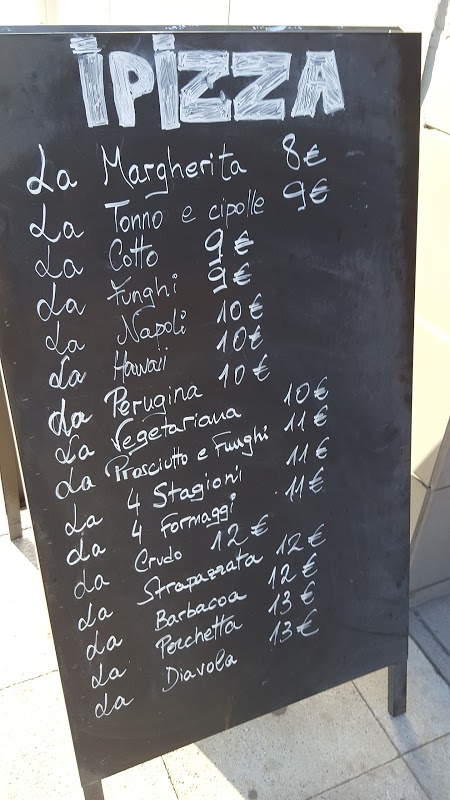 iPIZZA
La Margherita 8€
La Tonno e cipolle 9€
La Cotto 9€
La Funghi 9€
La Napoli 10€
La Hawaii 10€
La Perugina 10€
La Vegetariana 10€
La Prosciutto e Funghi 11€
La 4 Stagioni 11€
La 4 Formaggi 11€
La Crudo 12€
La Strapazzata 12€
La Barbacoa 12€
La Porchetta 13€
La Diavola 13€